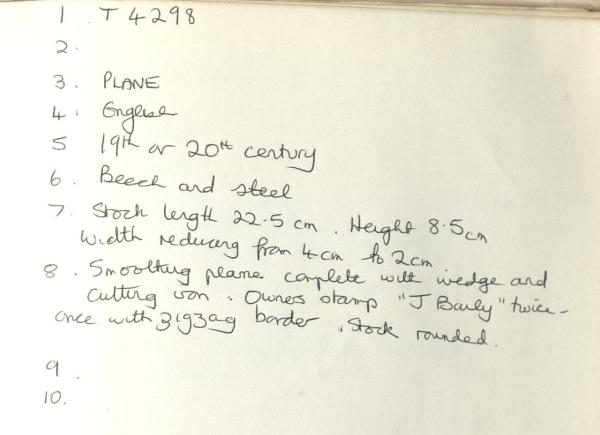 1. T 4298
2.
3. PLANE
4. English
5 19th or 20th century
6. Beech and steel
7. Stock length 22.5 cm. Height 8.5cm
Width reducing from 4cm to 2cm
8. Smoothing plane complete with wedge and
cutting iron. Owners stamp "J Baily" twice -
once with zigzag border. Stock rounded.
9.
10.